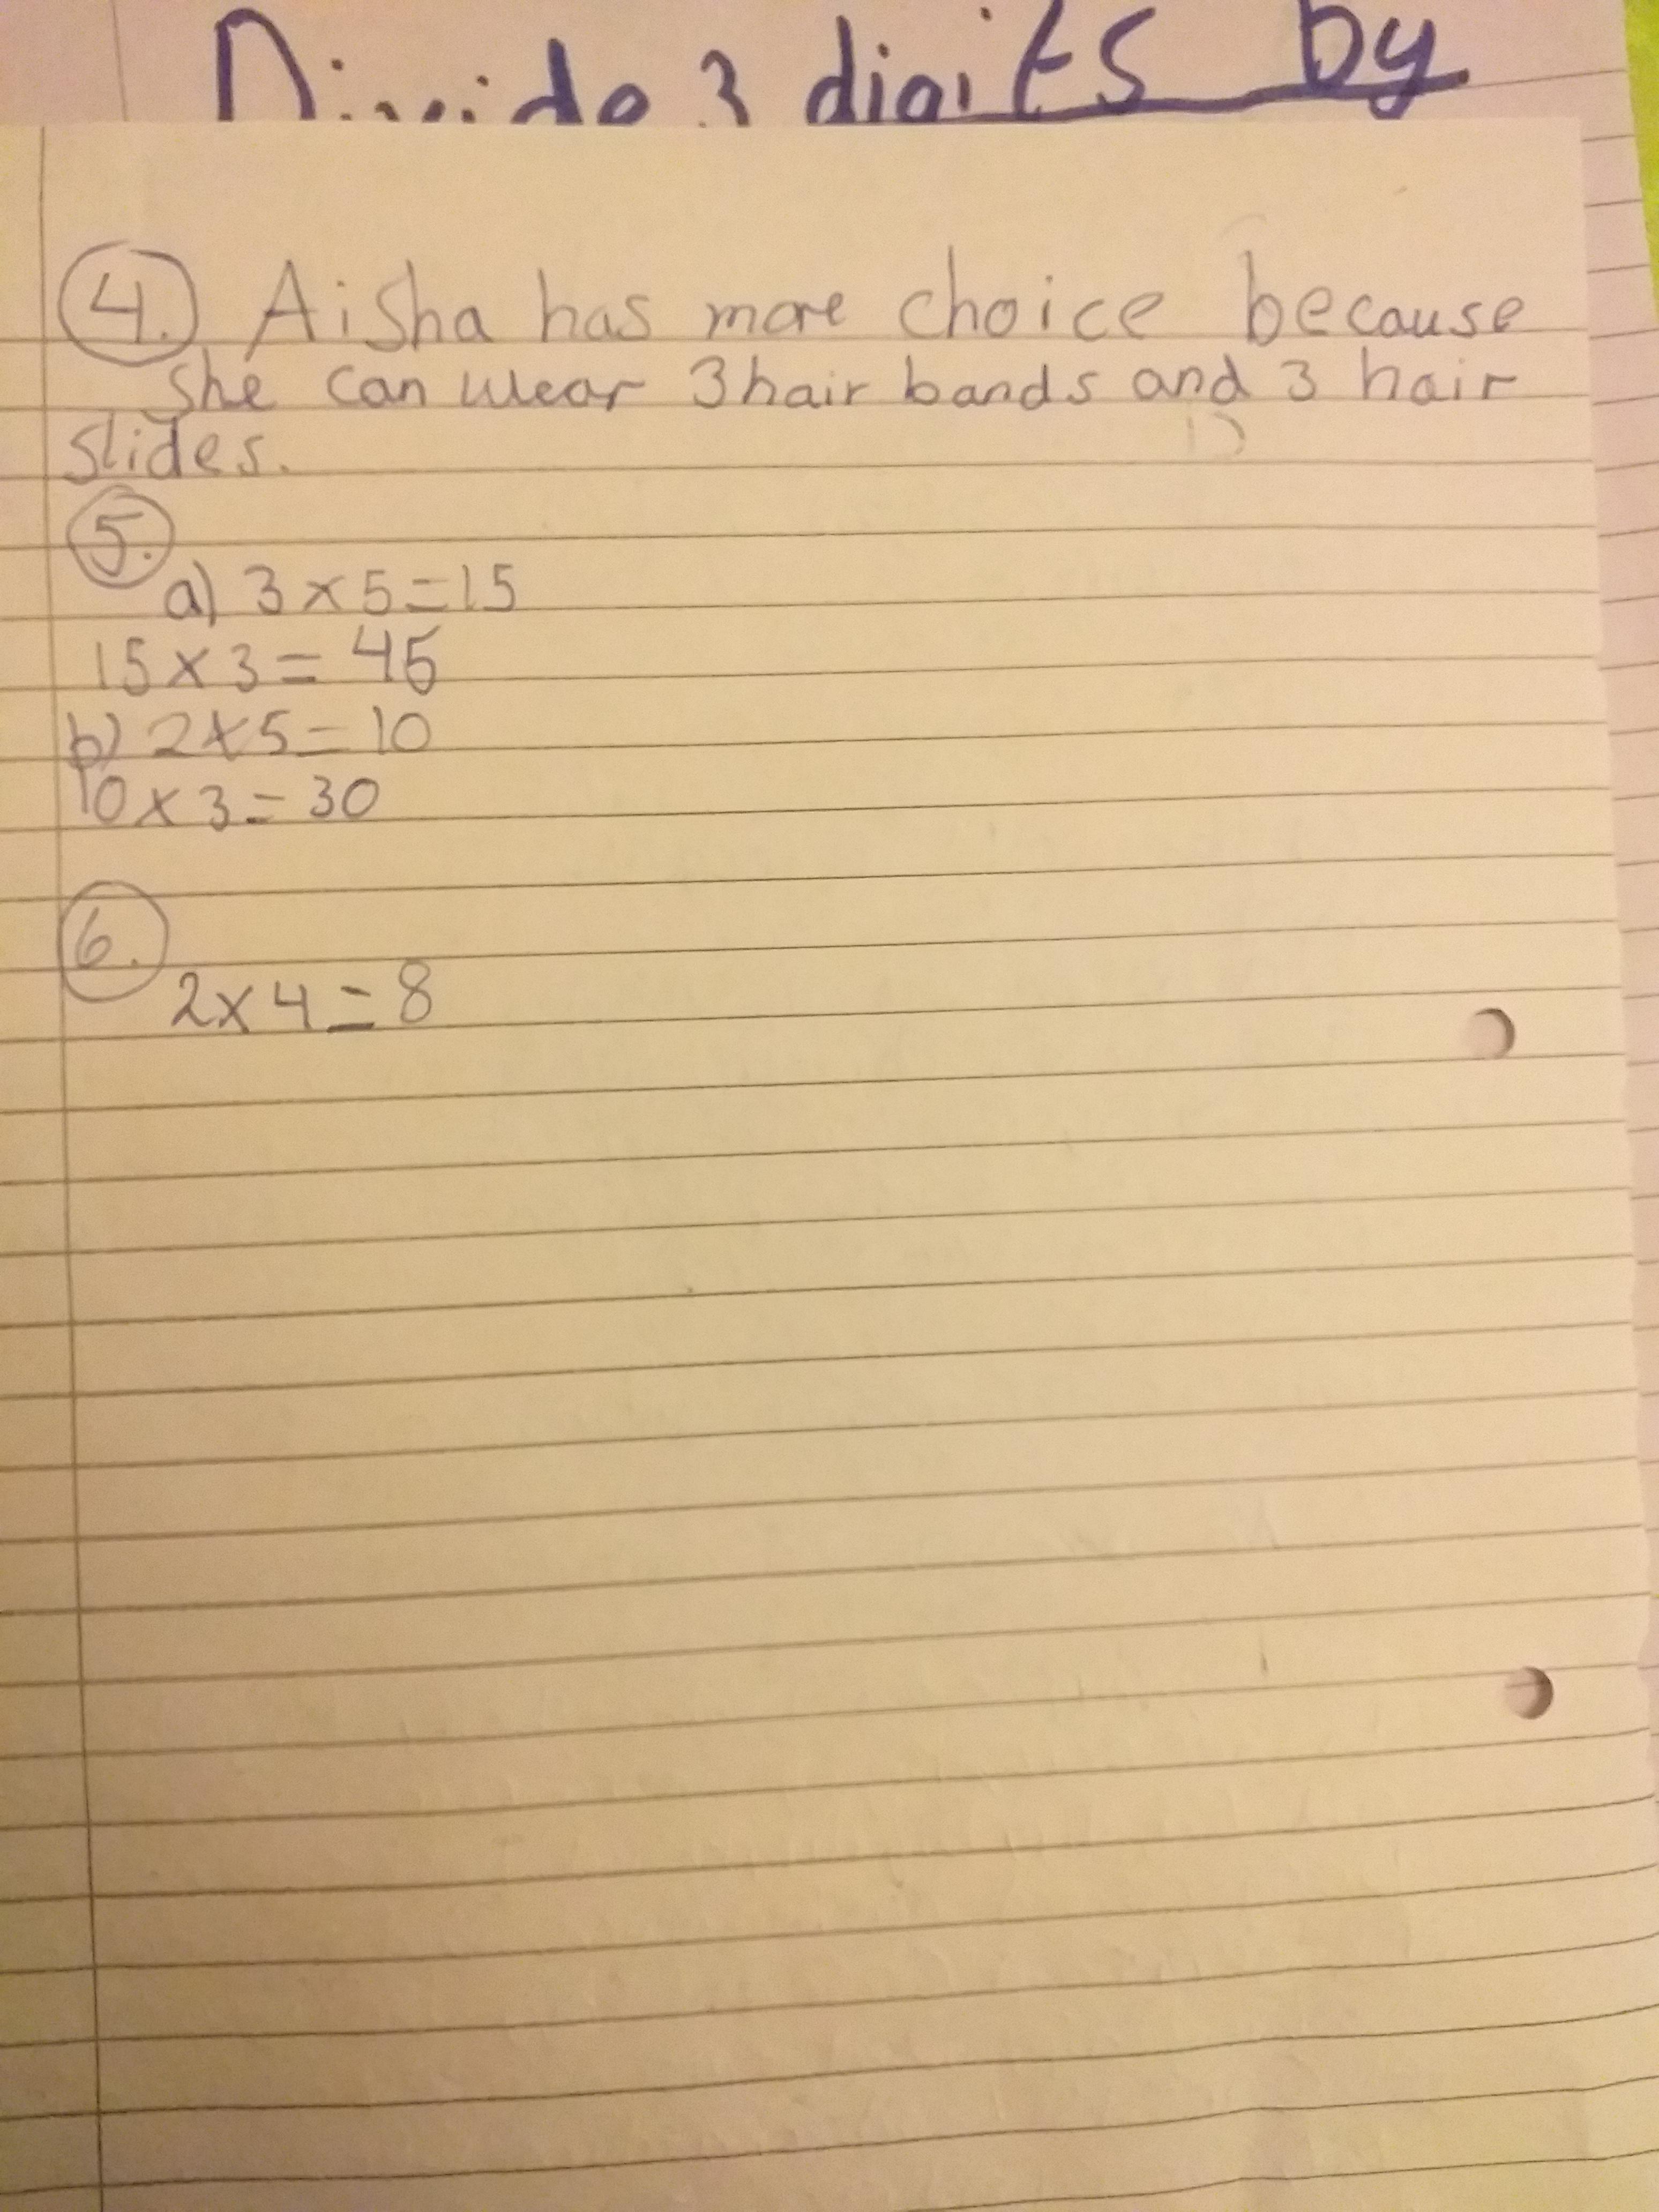 Divide 3 digits by
4. Aisha has more choice because
she can wear 3 hair bands and 3 hair
slides.
5.
a) 3 x 5 = 15
15 x 3 = 45
b) 2 x 5 = 10
10 x 3 = 30
6.
2 x 4 = 8